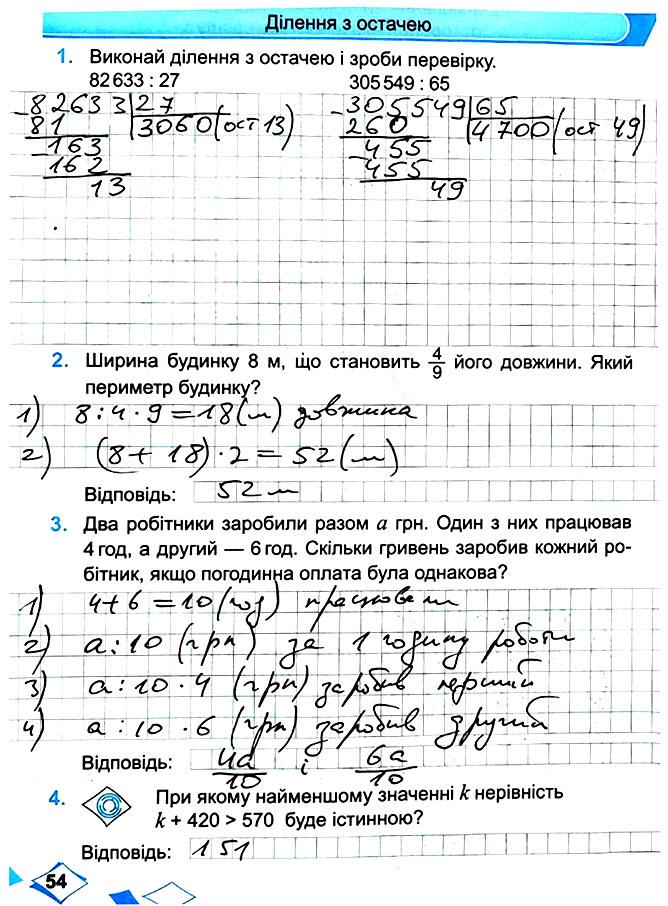 Ділення з остачею
1. Виконай ділення з остачею і зроби перевірку.
82 633 : 27 305 549 : 65
82633 27 305549 65
81 3060 (ост 13) 260 4700 (ост 49)
163 455
162 455
13 49
2. Ширина будинку 8 м, що становить 4/9 його довжини. Який
периметр будинку?
1) 8 : 4 · 9 = 18 (м) довжина
2) (8 + 18) · 2 = 52 (м)
Відповідь: 52 м
3. Два робітники заробили разом a грн. Один з них працював
4 год, а другий — 6 год. Скільки гривень заробив кожний ро-
бітник, якщо погодинна оплата була однакова?
1) 4 + 6 = 10 (год) працювали
2) a : 10 (грн) за 1 годину роботи
3) a : 10 · 4 (грн) заробив перший
4) a : 10 · 6 (грн) заробив другий
Відповідь: 4a/10 і 6a/10
4. При якому найменшому значенні k нерівність
k + 420 > 570 буде істинною?
Відповідь: 151
54